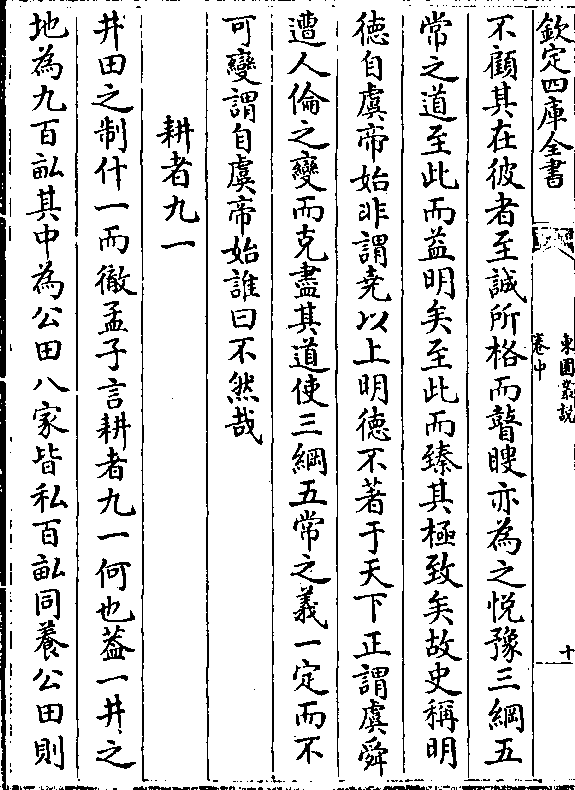 欽定四庫全書
東園叢説
卷中
十
不顧其在彼者至誠所格而瞽瞍亦為之悦豫三綱五
常之道至此而益明矣至此而臻其極致矣故史稱明
徳自虞帝始非謂堯以上明徳不著于天下正謂虞舜
遭人倫之變而克盡其道使三綱五常之義一定而不
可變謂自虞帝始誰曰不然哉
耕者九一
井田之制什一而徹孟子言耕者九一何也葢一井之
地為九百畝其中為公田八家皆私百畝同養公田則